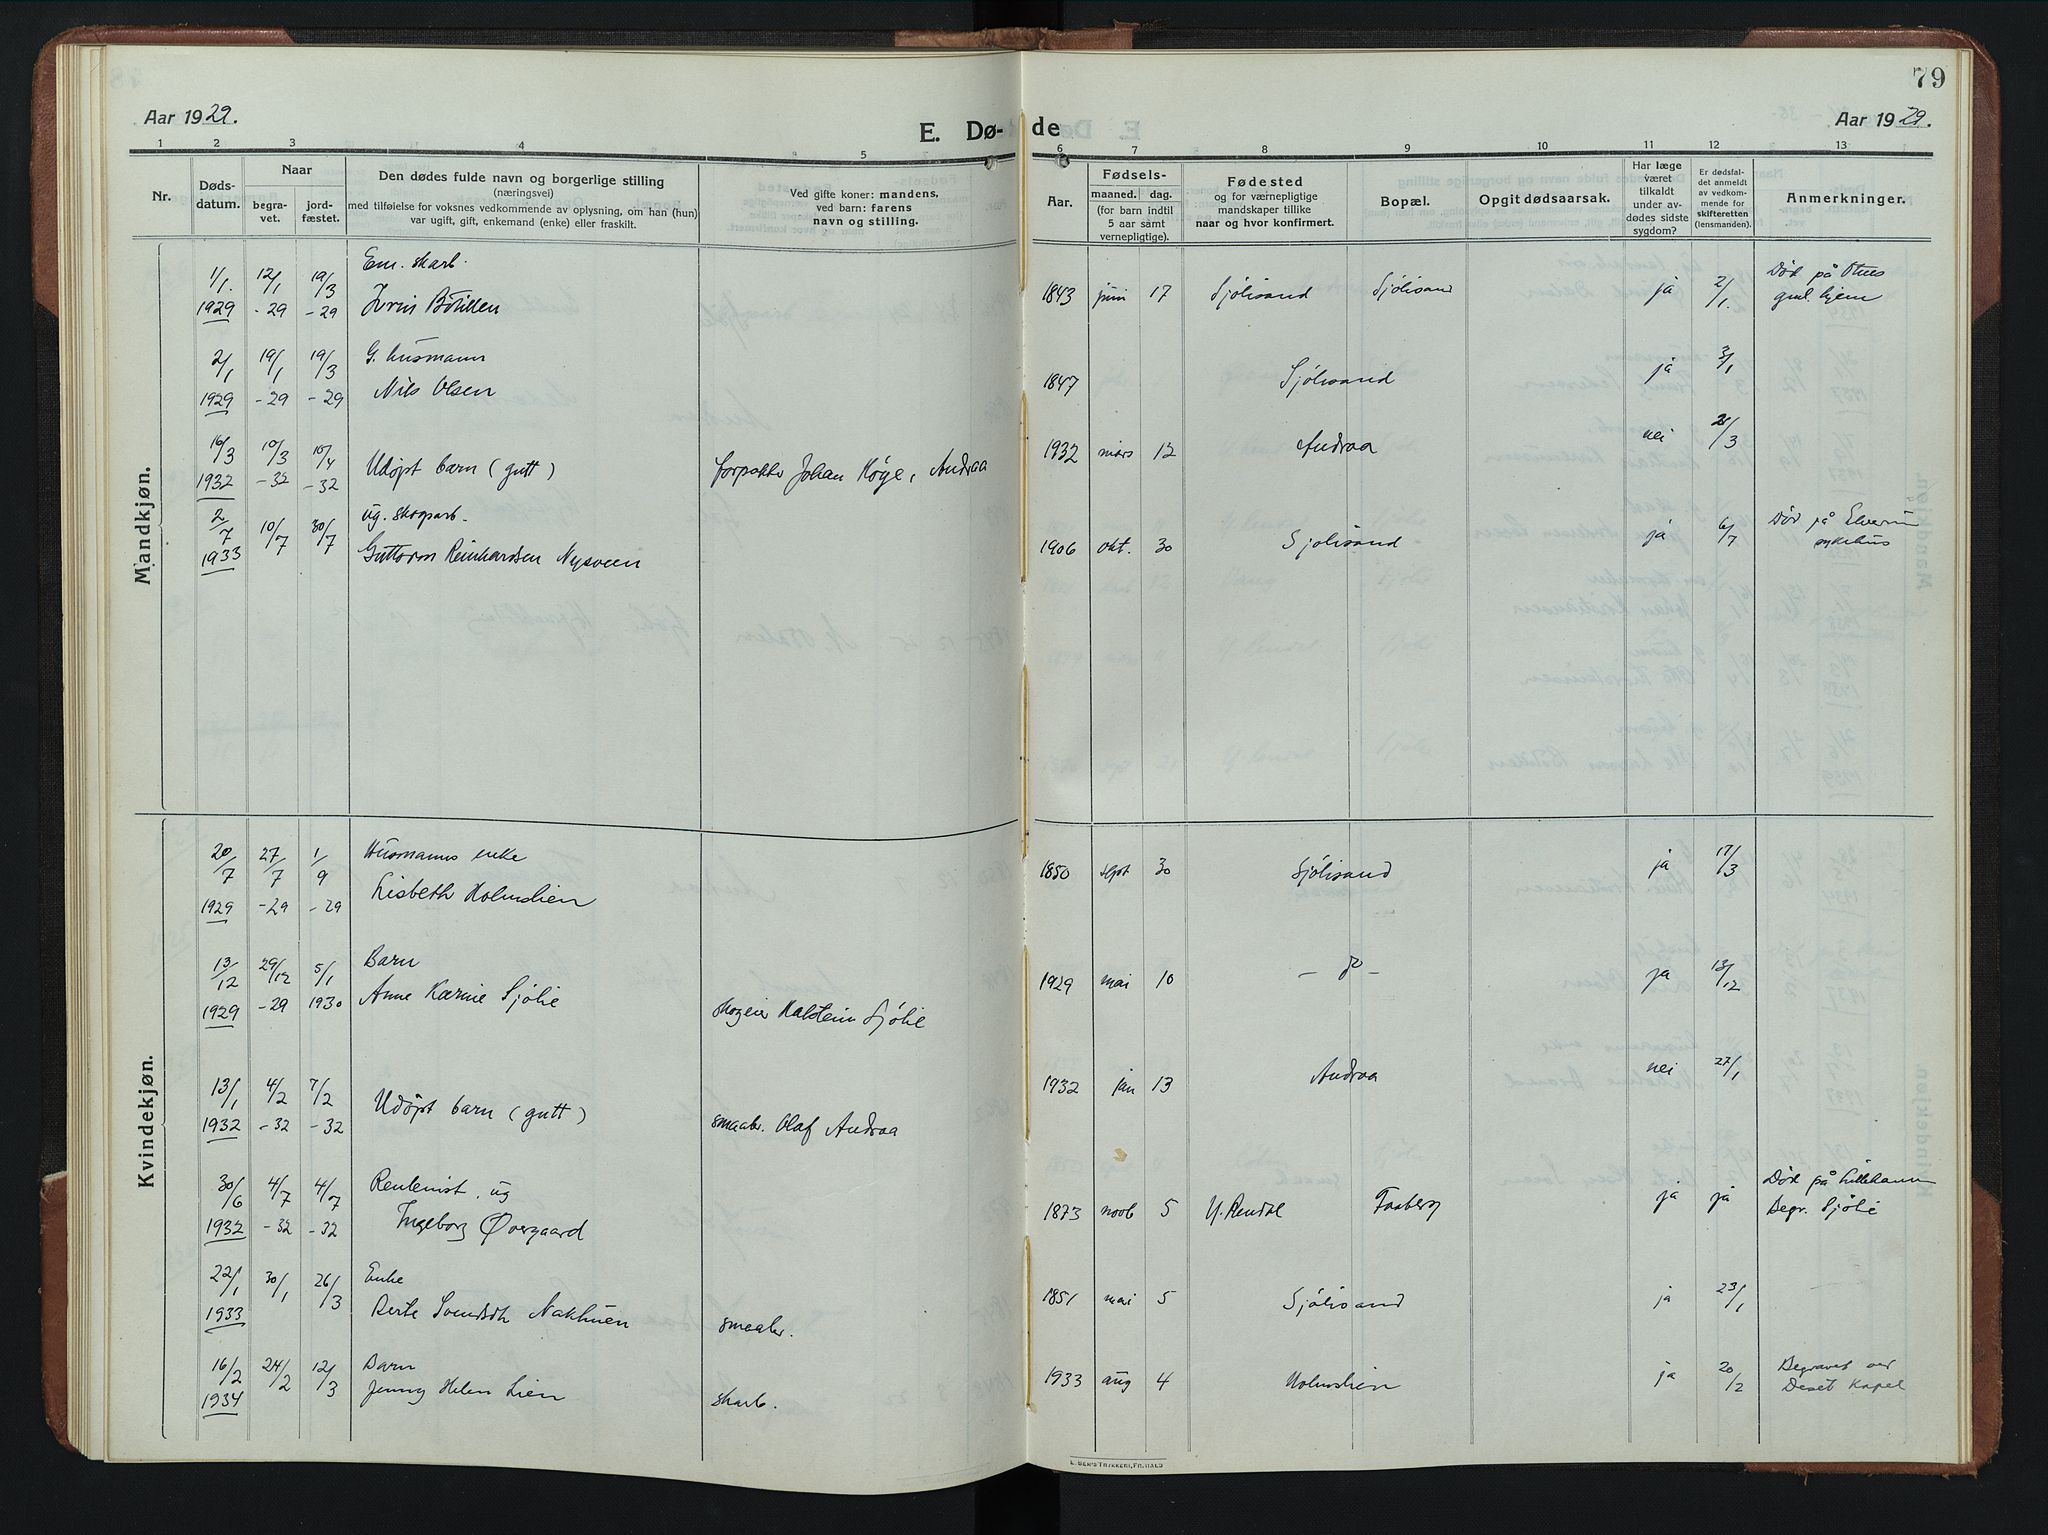 79
Aar 1929.
E. Døde
Aar 1929.
1 2 3 4 5 6 7 8 9 10 11 12 13
Nr.
Døds-
datum.
Naar
begra-
vet.
jord-
fæstet.
Den dødes fulde navn og borgerlige stilling
(næringsvei)
med tilføielse for voksnes vedkommende av oplysning, om han (hun)
var ugift, gift, enkemand (enke) eller fraskilt.
Ved gifte koner: mandens,
ved barn: farens
navn og stilling.
Aar.
Fødsels-
maaned. dag.
(for barn indtil
5 aar samt
vernepligtige).
Fødested
og for værnepligtige
mandskaper tillike
naar og hvor konfirmert.
Bopæl.
Opgit dødsaarsak.
Har læge
været
tilkaldt
under av-
dødes sidste
sygdom?
Er dødsfal-
det anmeldt
av vedkom-
mende for
skifteretten
(lensmanden).
Anmerkninger.
Mandkjøn.
1/1. 12/1 19/3 Em. skarb.
1929 -29 -29 Bötilken 1843 juni 17 Sjölisand Sjölisand ja 2/1. Död på
gml. hjem
2/1 19/1 19/3 G. husmann
1929 -29 -29 Nils Olsen 1847 Sjölisand ja 3/1
16/3 10/3 10/4
1932 -32 -32 Udöpt barn (gutt) forpakter Johan Höye, Andraa 1932 mars 12 Andraa nei /3
2/7 10/7 30/7 ug. skogarb.
1933 Guttorm Reinhardsen Nysveen 1906 okt. 30 Sjölisand ja 6/7 Död på Elverum
sykehus
Kvindekjøn.
20/7 27/7 1/9 Husmanns enke
1929 -29 -29 Lisbeth Holmslien 1850 sept 30 Sjölisand ja 17/3
13/12 29/12 5/1 Barn
1929 -29 1930 Anne Karine Sjölie skogeier Halstein Sjölie 1929 mai 10 - do - ja 13/12
13/1 4/2 7/2
1932 -32 -32 Udöpt barn (gutt) smaabr. Olaf Andraa 1932 jan 13 Andraa nei 27/1
30/6 4/7 4/7 Rentenist, ug
1932 -32 -32 Ingeborg Øvergaard 1873 novb 5 Y. Rendal Faaberg ja ja Död på Lillehamm
Begr. Sjölie
22/1 30/1 26/3 Enke
1933 Berte Svendsdt. Nakhuen smaabr. 1851 mai 5 Sjölisand ja 23/1
16/2 24/2 12/3 Barn
1934 Jenny Helen Lien skarb. 1933 aug 4 Holmslien ja 20/2 Begravet ved
Deset Kapel